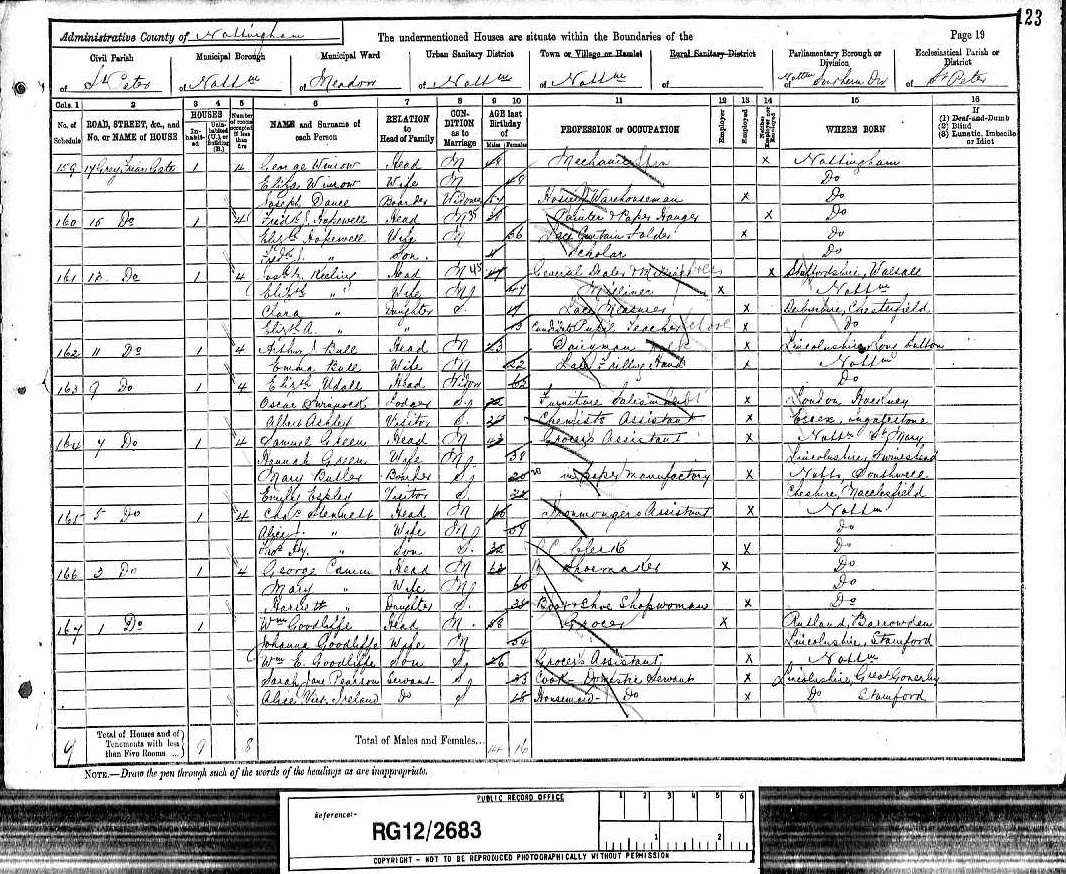 123
Administrative County of Nottingham
The undermentioned Houses are situate within the Boundaries of the
Page 19
Civil Parish
Municipal Borough
Municipal Ward
Urban Sanitary District
Town or Village or Hamlet
Rural Sanitary District
Parliamentary Borough or Division
Ecclesiastical Parish or District
of St Peter
of Nottm
of Meadow
of Nottm
of Nottm
of
of Nottm Southern Div
of St Peter
Cols. 1 2 3 4 5 6 7 8 9 10 11 12 13 14 15 16
No. of Schedule
ROAD, STREET, &c., and No. or NAME of HOUSE
HOUSES
Inhabited
Uninhabited (U.), or Building (B.)
Number of rooms occupied if less than five
NAME and Surname of each Person
RELATION to Head of Family
CONDITION as to Marriage
AGE last Birthday of
Males Females
PROFESSION or OCCUPATION
Employer
Employed
Neither Employer nor Employed
WHERE BORN
If (1) Deaf-and-Dumb (2) Blind (3) Lunatic, Imbecile or Idiot
159 17 Grey Friar Gate 1 4 George Winrow Head M 48 Mechanic x Nottingham
Eliza Winrow Wife M 48 Do
Joseph Dance Boarder Widower Hosiery Warehouseman x Do
160 15 Do 1 4 Fredk S. Hopewell Head M 35 Painter & Paper Hanger x Do
Elizth Hopewell Wife M 36 Lace Curtain Folder x Do
Fredk J. " Son 4 Scholar Do
161 13 Do 1 4 Keeling Head M 45 General Dealer x Staffordshire, Walsall
Elizth " Wife M 47 Milliner x Nottm
Clara " Daughter S. 17 Lace Measurer x Derbyshire, Chesterfield
Elizth A. " " 15 Candidate Pupil Teacher x Do
162 11 Do 1 4 Arthur J. Bull Head M 23 Dairyman x Lincolnshire, Long Sutton
Emma Bull Wife M 22 Lace Frilling Hand x Nottm
163 9 Do 1 4 Elizth Udall Head Widow 62 Do
Oscar Swinnock Lodger S. Furniture Salesman x London Hackney
Albert Ashley Visitor S. Chemists Assistant x Essex, Ingatestone
164 7 Do 1 4 Samuel Green Head M 42 Grocer's Assistant x Notts St Mary
Hannah Green Wife M 38 Lincolnshire, Swinestead
Mary Butler Boarder S 20 in paper manufactory x Notts Southwell
Emily Espley Visitor S. Cheshire, Macclesfield
165 5 Do 1 4 Chas Stennett Head M 66 Ironmonger's Assistant x Nottm
Alice J. " Wife M 59 Do
Thos Hy. " Son S. 32 Clerk x Do
166 3 Do 1 4 George Head M 62 Shoemaker x Do
Mary " Wife M 65 Do
Harriett " Daughter S. Boot & Shoe Shopwoman x Do
167 1 Do 1 Wm Goodliffe Head M 58 Grocer x Rutland, Barrowden
Johanna Goodliffe Wife M 54 Lincolnshire, Stamford
Wm E. Goodliffe Son S 26 Grocer's Assistant x Nottm
Sarah Jane Pearson Servant S 23 Cook - Domestic Servant x Lincolnshire, Great Gonerby
Alice Vict. Ireland Do S 18 Housemaid - Do x Do Stamford
9 Total of Houses and of Tenements with less than Five Rooms ... 9 8 Total of Males and Females... 14 16
NOTE.—Draw the pen through such of the words of the headings as are inappropriate.
PUBLIC RECORD OFFICE
1 2 3 4 5 6
Reference:-
RG12/2683
1 2
COPYRIGHT - NOT TO BE REPRODUCED PHOTOGRAPHICALLY WITHOUT PERMISSION